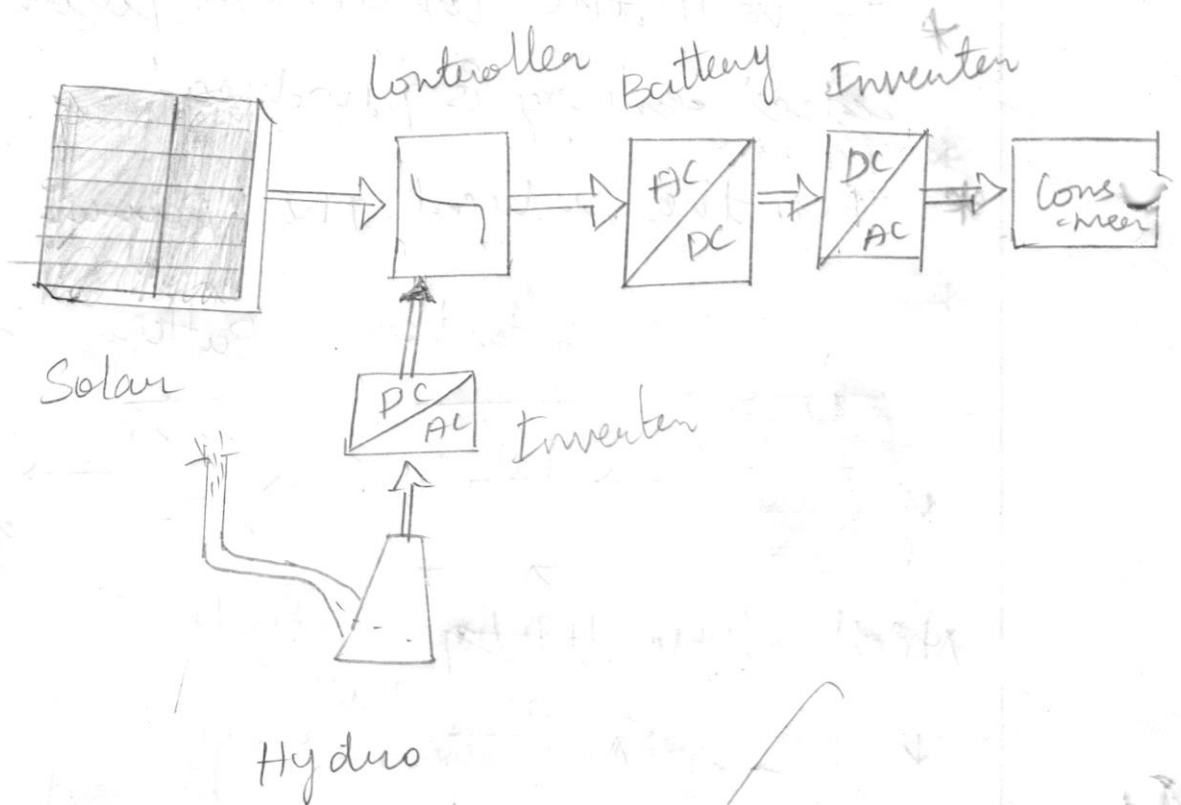 Controller Battery Inverter
AC
DC
DC
AC
Cons
-umer
Solar
DC
AC
Inverter
Hydro